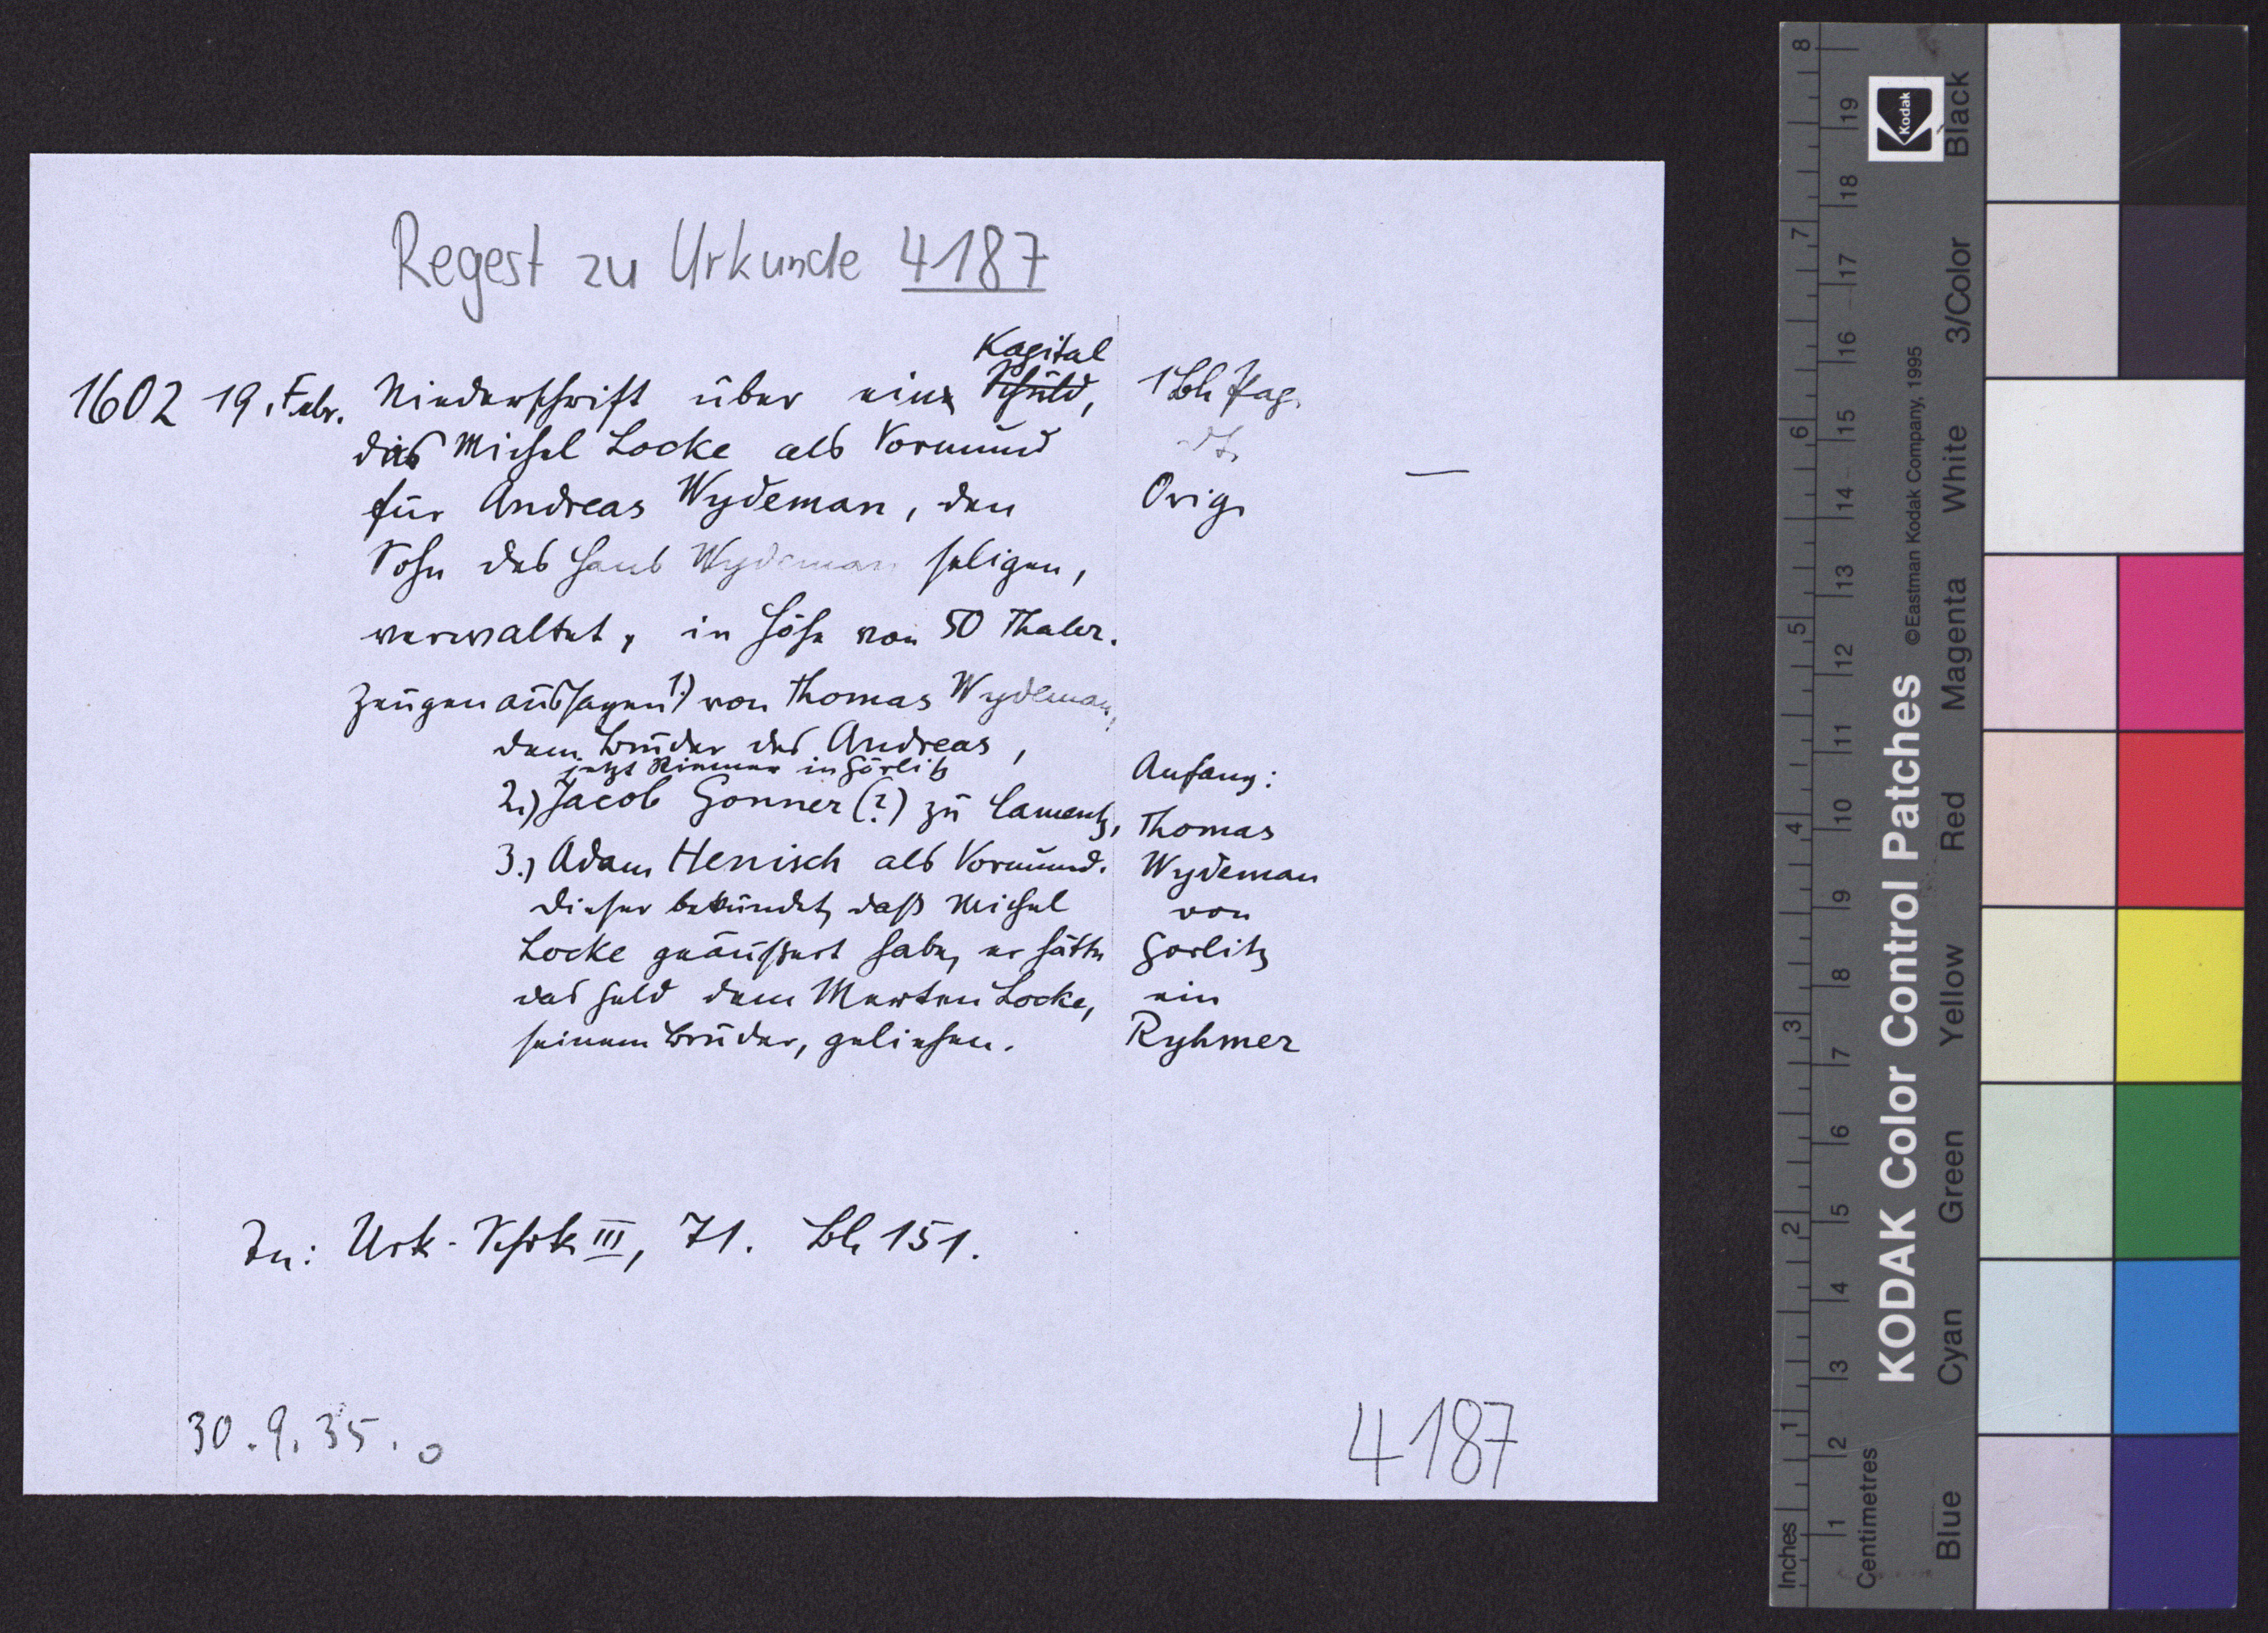 Regest zu Urkunde 4187
Kapital
1602 19. Febr. Niederschrift über ein Schuld, 1 Bl. Pap.
das Michel Locke als Vormund dt.
für Andreas Wydeman, den Orig.
Sohn des Hans Wydeman seligen, —
verwaltet, in Höhe von 50 Thaler.
Zeugenaussagen 1.) von Thomas Wydeman,
dem Bruder des Andreas,
jetzt Riemer in Görlitz
2.) Jacob Gonner (?) zu Camentz,
3.) Adam Henisch als Vormund.
Dieser bekundet, daß Michel
Locke geäußert habe, er hätte
das Geld dem Merten Locke,
seinem Bruder, geliehen.
Anfang:
Thomas
Wydeman
von
Gorlitz
ein
Ryhmer
In: Urk.-Schrk III, 71. Bl. 151.
30.9.35.
4187
Kodak
KODAK Color Control Patches
©Eastman Kodak Company, 1995
Blue Cyan Green Yellow Red Magenta White 3/Color Black
Inches 1 2 3 4 5 6 7 8
Centimetres 1 2 3 4 5 6 7 8 9 10 11 12 13 14 15 16 17 18 19